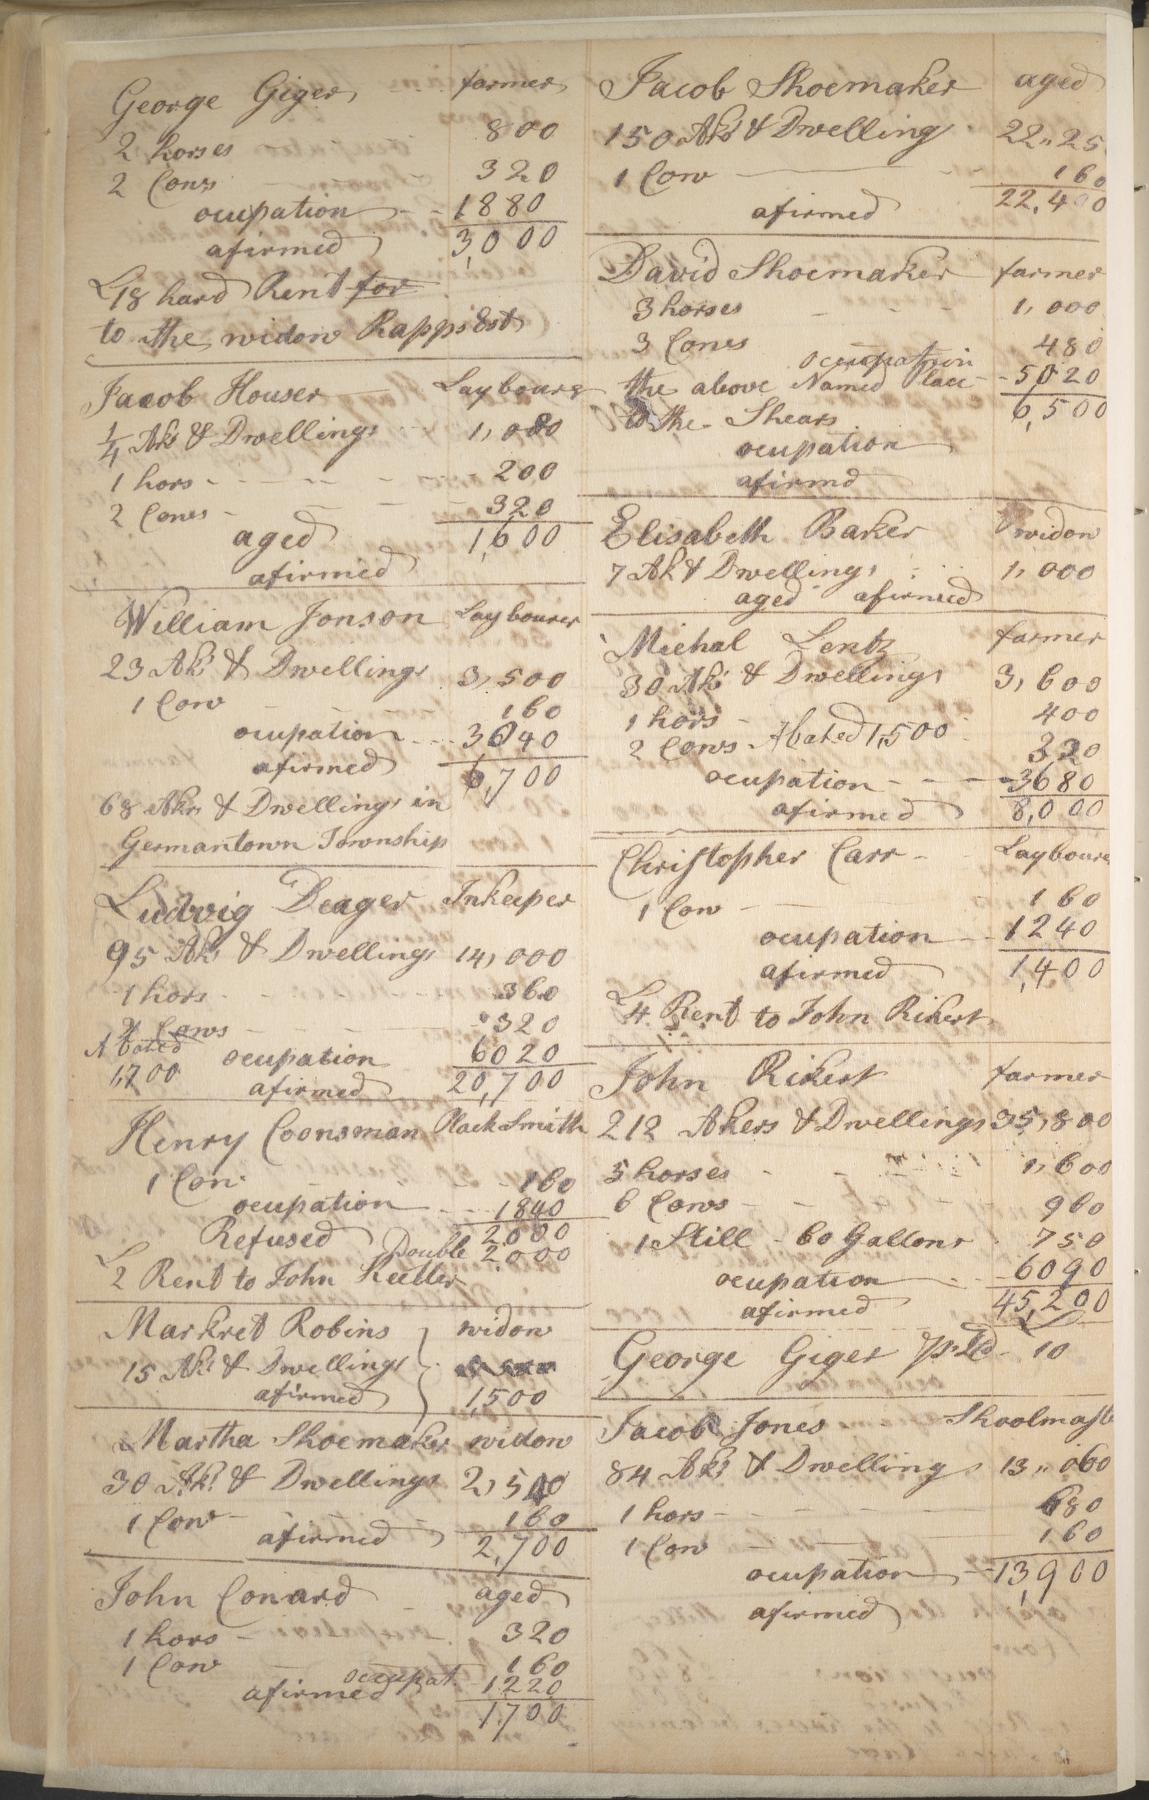 George Giger farmer
2 horses 800
2 Cows 320
ocupation 1880
afirmed 3,000
£18 hard Rent for
to the widow Rapps Est
Jacob Houser Laybourer
1/4 Akr & Dwellings 1,080
1 hors 200
2 Cows 320
aged 1,600
afirmed
William Jonson Laybourer
23 Akrs & Dwellings 3,500
1 Cow 160
ocupation 3040
afirmed 6,700
68 Akrs & Dwellings in
Germantown Township
Ludwig Deager Inkeeper
95 Akrs & Dwellings 14,000
1 hors 360
2 Cows 320
Abated ocupation 6020
1,700 afirmed 20,700
Henry Coonsman Black Smith
1 Cow 160
ocupation 1840
Refused 2000
Double 2,000
£2 Rent to John
Markret Robins widow
15 Akrs & Dwellings
afirmed 1,500
Martha Shoemaker widow
30 Akrs & Dwellings 2,540
1 Cow 160
afirmed 2,700
John Conard aged
1 hors 320
1 Cow 160
ocupat. 1220
afirmed
1,700
Jacob Shoemaker aged
150 Akrs & Dwelling 22,,25
1 Cow 160
afirmed 22,400
David Shoemaker farmer
3 horses 1,000
3 Cows 480
ocupation
the above Named Place 5020
to the Shears 6,500
ocupation
afirmd
Elisabeth Baker widow
7 Ak & Dwellings 1,000
aged afirmed
Michal Lentz farmer
30 Akrs & Dwellings 3,600
1 hors 400
2 Cows Abated 1,500 320
ocupation 3680
afirmed 8,000
Christopher Carr Laybourer
1 Cow 160
ocupation 1240
afirmed 1,400
£4 Rent to John Rikert
John Rikert farmer
212 Akers & Dwellings 35,800
5 horses 1,600
6 Cows 960
1 Still 60 Gallons 750
ocupation 6090
afirmed 45,200
George Giger 10
Jacob Jones Shoolmast
84 Akrs & Dwelling 13,,060
1 hors 680
1 Cow 160
ocupation 13,900
afirmed